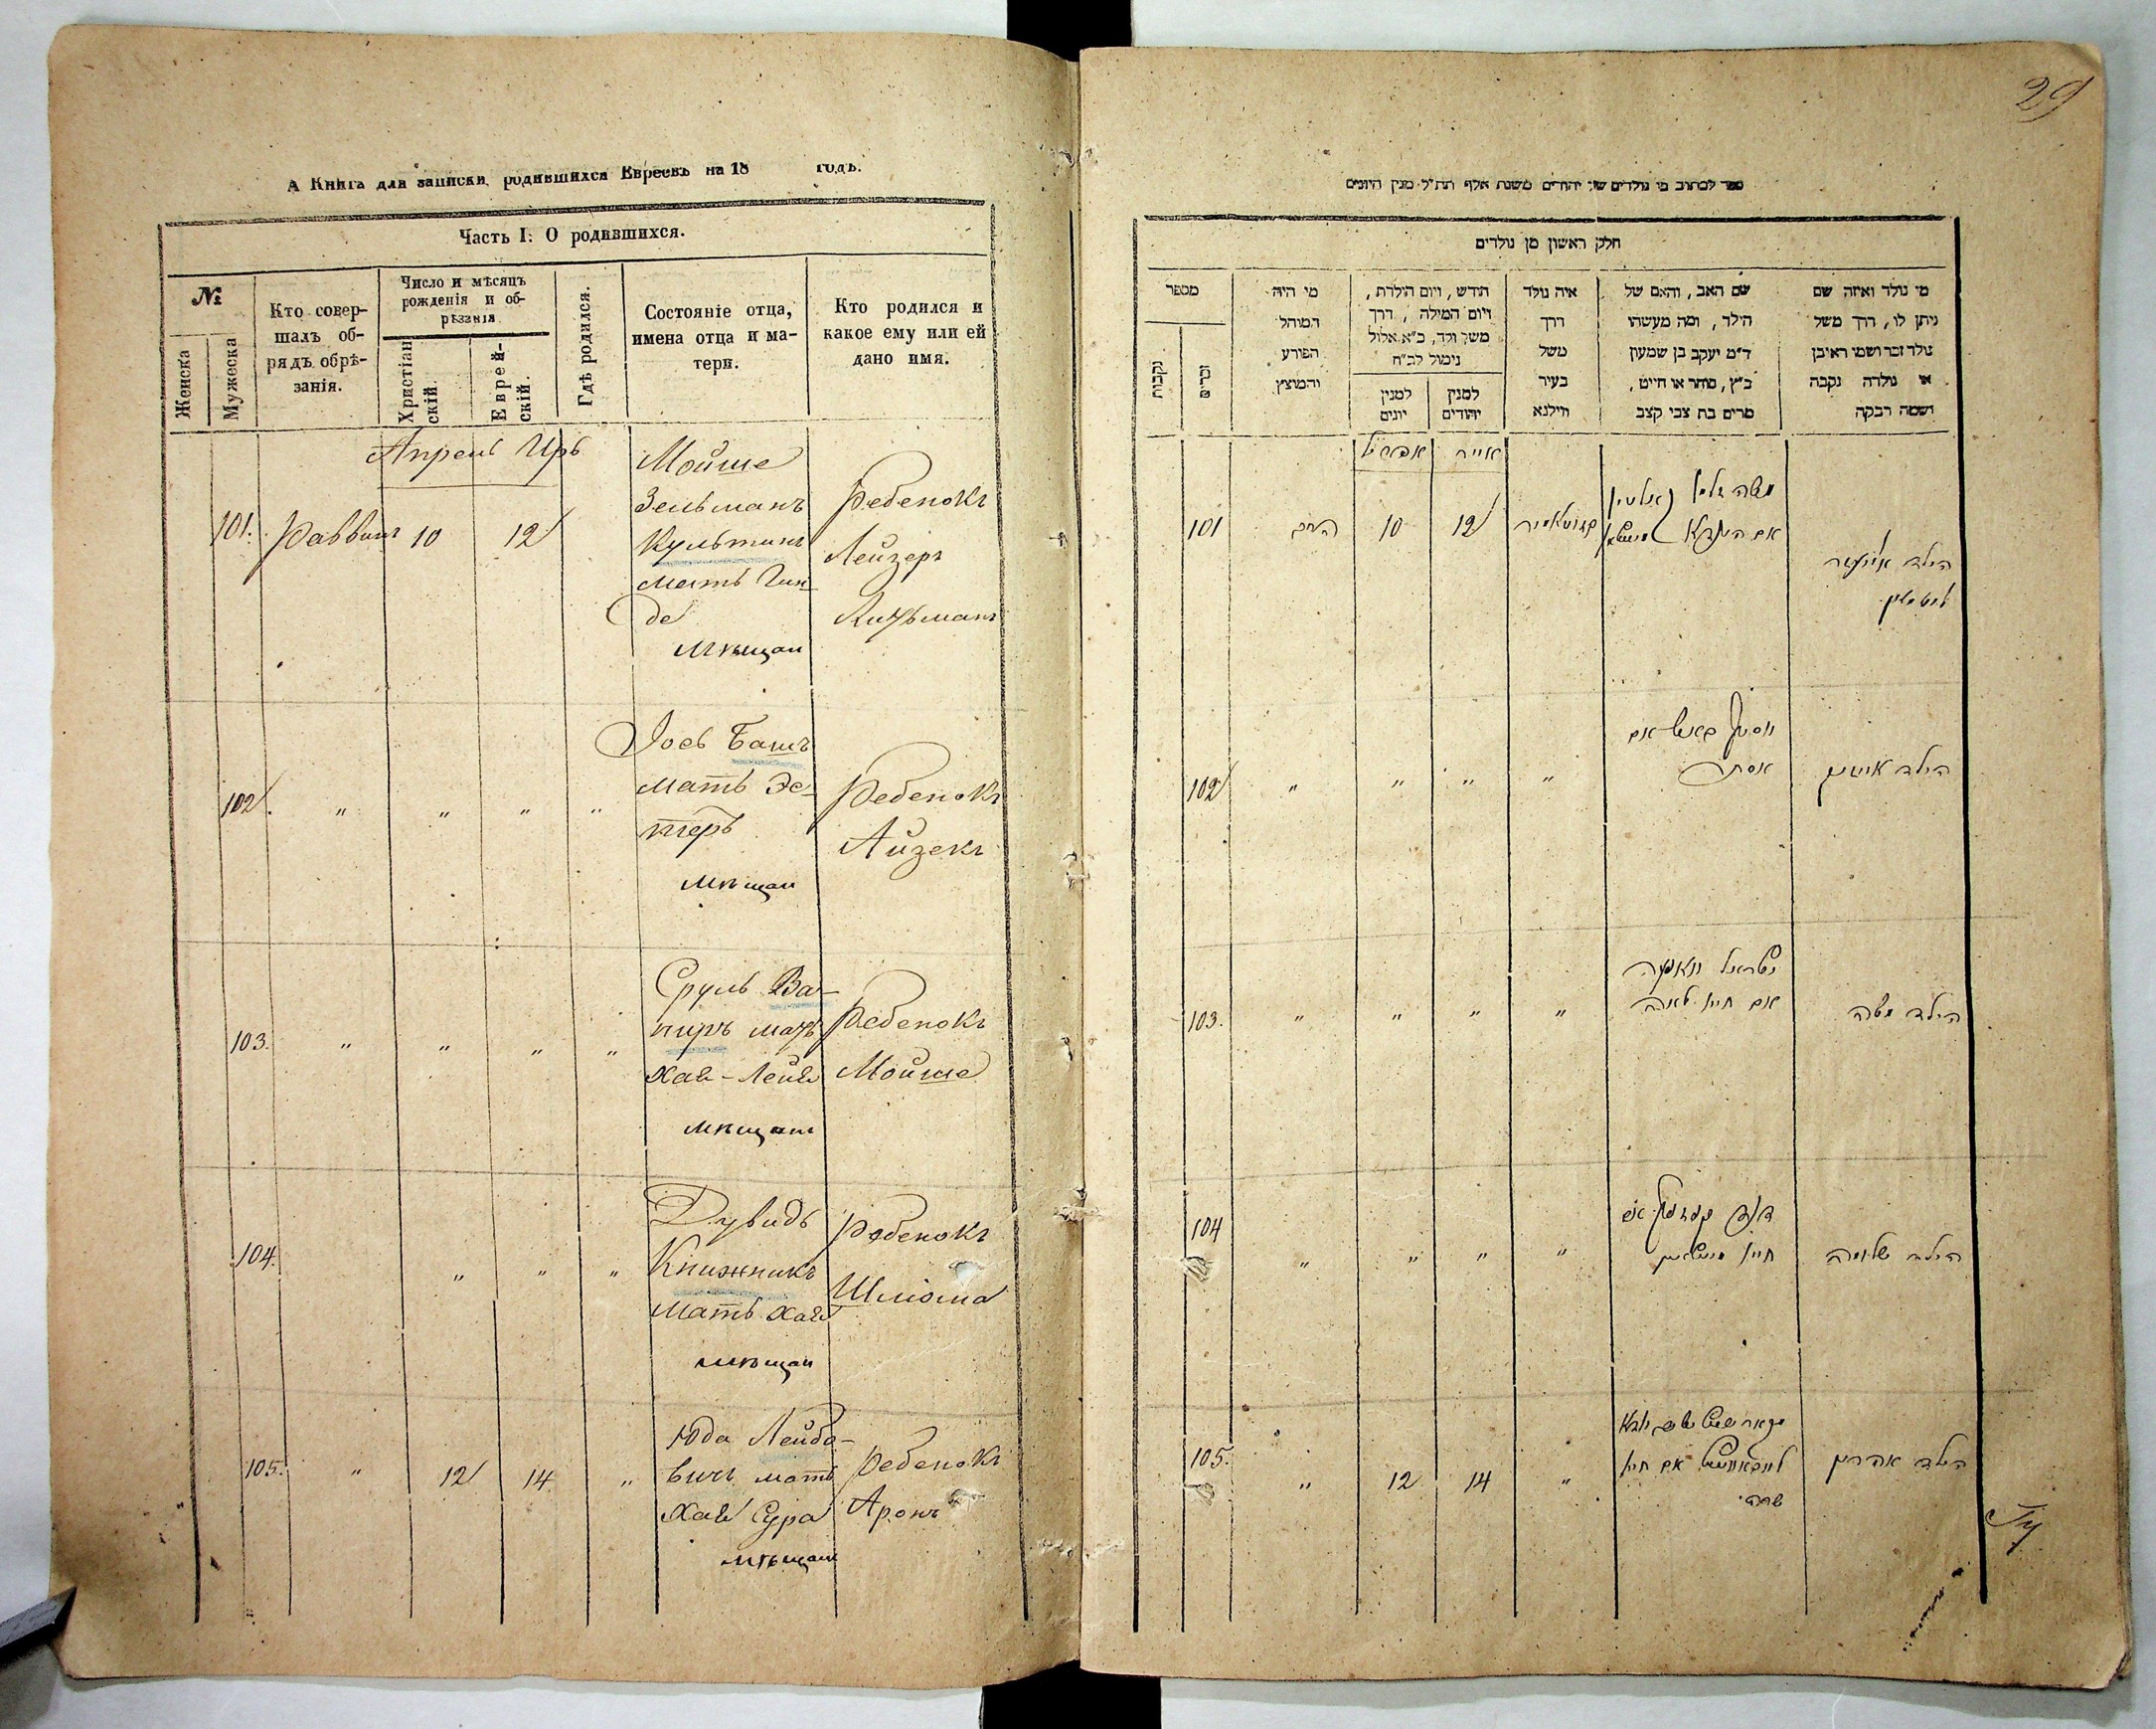 А Книга для записки родившихся Евреевъ на 18 годъ.
Часть I. О родившихся.
№
Женска
Мужеска
Кто совер-
шалъ об-
рядъ обрѣ-
занія.
Число и мѣсяцъ
рожденія и об-
рѣзанія
Христіан
скій.
Еврей-
скій.
Гдѣ родился.
Состояніе отца,
имена отца и ма-
тери.
Кто родился и
какое ему или ей
дано имя.
Апрель Иръ
101. Раввинъ 10 12
Мойше
Зельманъ
Культинъ
мать Гин
де
мѣщан
Ребенокъ
Лейзеръ
Литьманъ
102. " " " "
Іось Башъ
мать Эс-
теръ
мѣщан
Ребенокъ
Айзекъ
103. " " " "
Сруль Ва-
пиръ мать
Хая-Лейя
мѣщан
Ребенокъ
Мойше
104. " " "
Дувидъ
Книжникъ
мать Хая
мѣщан
Ребенокъ
Шлiома
105. " 12 14 "
Юда Лейбо-
вичъ мать
Хая Сура
мѣщан
Ребенокъ
Аронъ
29
ספר לכתוב בו נולדים של יהודים משנת אלף תת"ל מנין היונים
חלק ראשון מן נולדים
מספר
נקבות
זכרים
מי היה
המוהל
הפורע
והמוצץ
חודש, ויום הולדת,
ויום המילה, דרך
משל ולד, כ"א אלול
נימול לכ"ח
למנין
יונים
למנין
יהודים
איה נולד
דרך
משל
בעיר
ווילנא
שם האב, והאם של
הילד, ומה מעשהו
ד"מ יעקב בן שמעון
כ"ץ, סוחר או חייט,
מרים בת צבי קצב
מי נולד ואיזה שם
ניתן לו, דרך משל
נולד זכר ושמו ראובן
או נולדה נקבה
ושמה רבקה
אפריל אייר
101 הרב 10 12
משה זלמן
אם הינדא
הילד אליעזר
ליטמאן
102 " " " "
יוסף באש אם
אסתר
הילד אייזיק
103. " " " "
ישראל וואפניר
אם חיה לאה
הילד משה
104 " " " "
דוד קניזניק אם
חיה
הילד שלומה
105. " 12 14 "
יודא
לייבאוויטש אם חיה
שרה
הילד אהרון